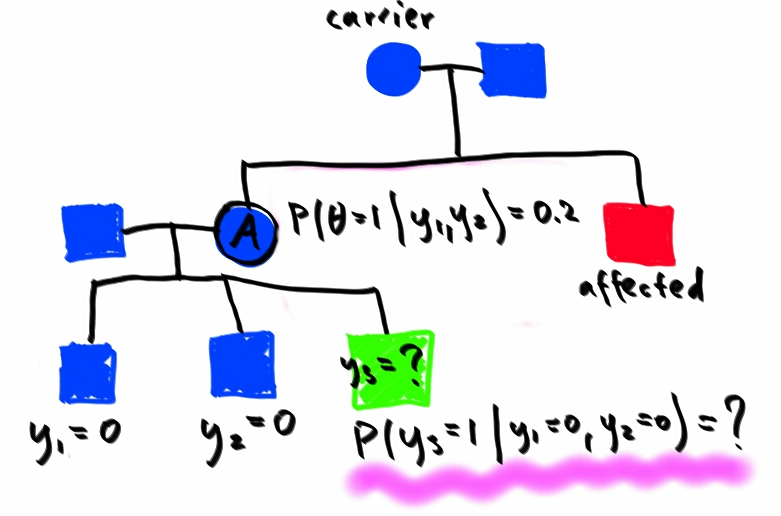 carrier
A
P(θ=1|y₁,y₂)=0.2
affected
y₃=?
y₁=0
y₂=0
P(y₃=1|y₁=0,y₂=0)=?